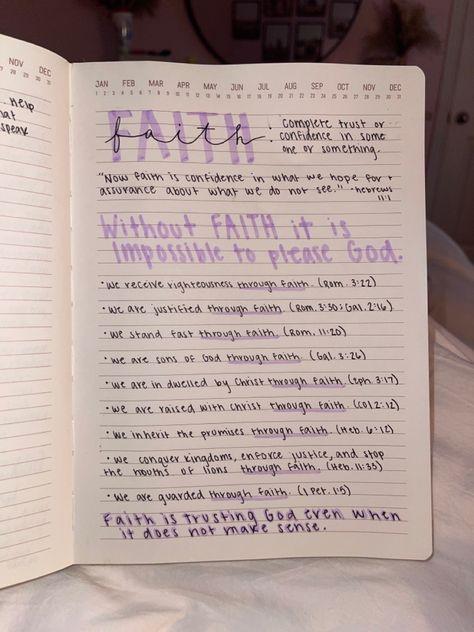 NOV DEC
Help
hat
speak
JAN FEB MAR APR MAY JUN JUL AUG SEP OCT NOV DEC
FAITH
faith: complete trust or
confidence in some
one or something.
"Now faith is confidence in what we hope for +
assurance about what we do not see." -hebrews
11:1
Without FAITH it is
impossible to please God.
• we receive righteousness through faith. (Rom. 3:22)
• we are justified through faith. (Rom. 3:30; Gal. 2:16)
• we stand fast through faith. (Rom. 11:20)
• we are sons of God through faith. (Gal. 3:26)
• we are in dwelled by Christ through faith. (Eph. 3:17)
• we are raised with Christ through faith. (Col 2:12)
• we inherit the promises through faith. (Heb. 6:12)
• we conquer kingdoms, enforce justice, and stop
the mouths of lions through faith. (Heb. 11:33)
• we are guarded through faith. (1 Pet. 1:5)
Faith is trusting God even when
it does not make sense.